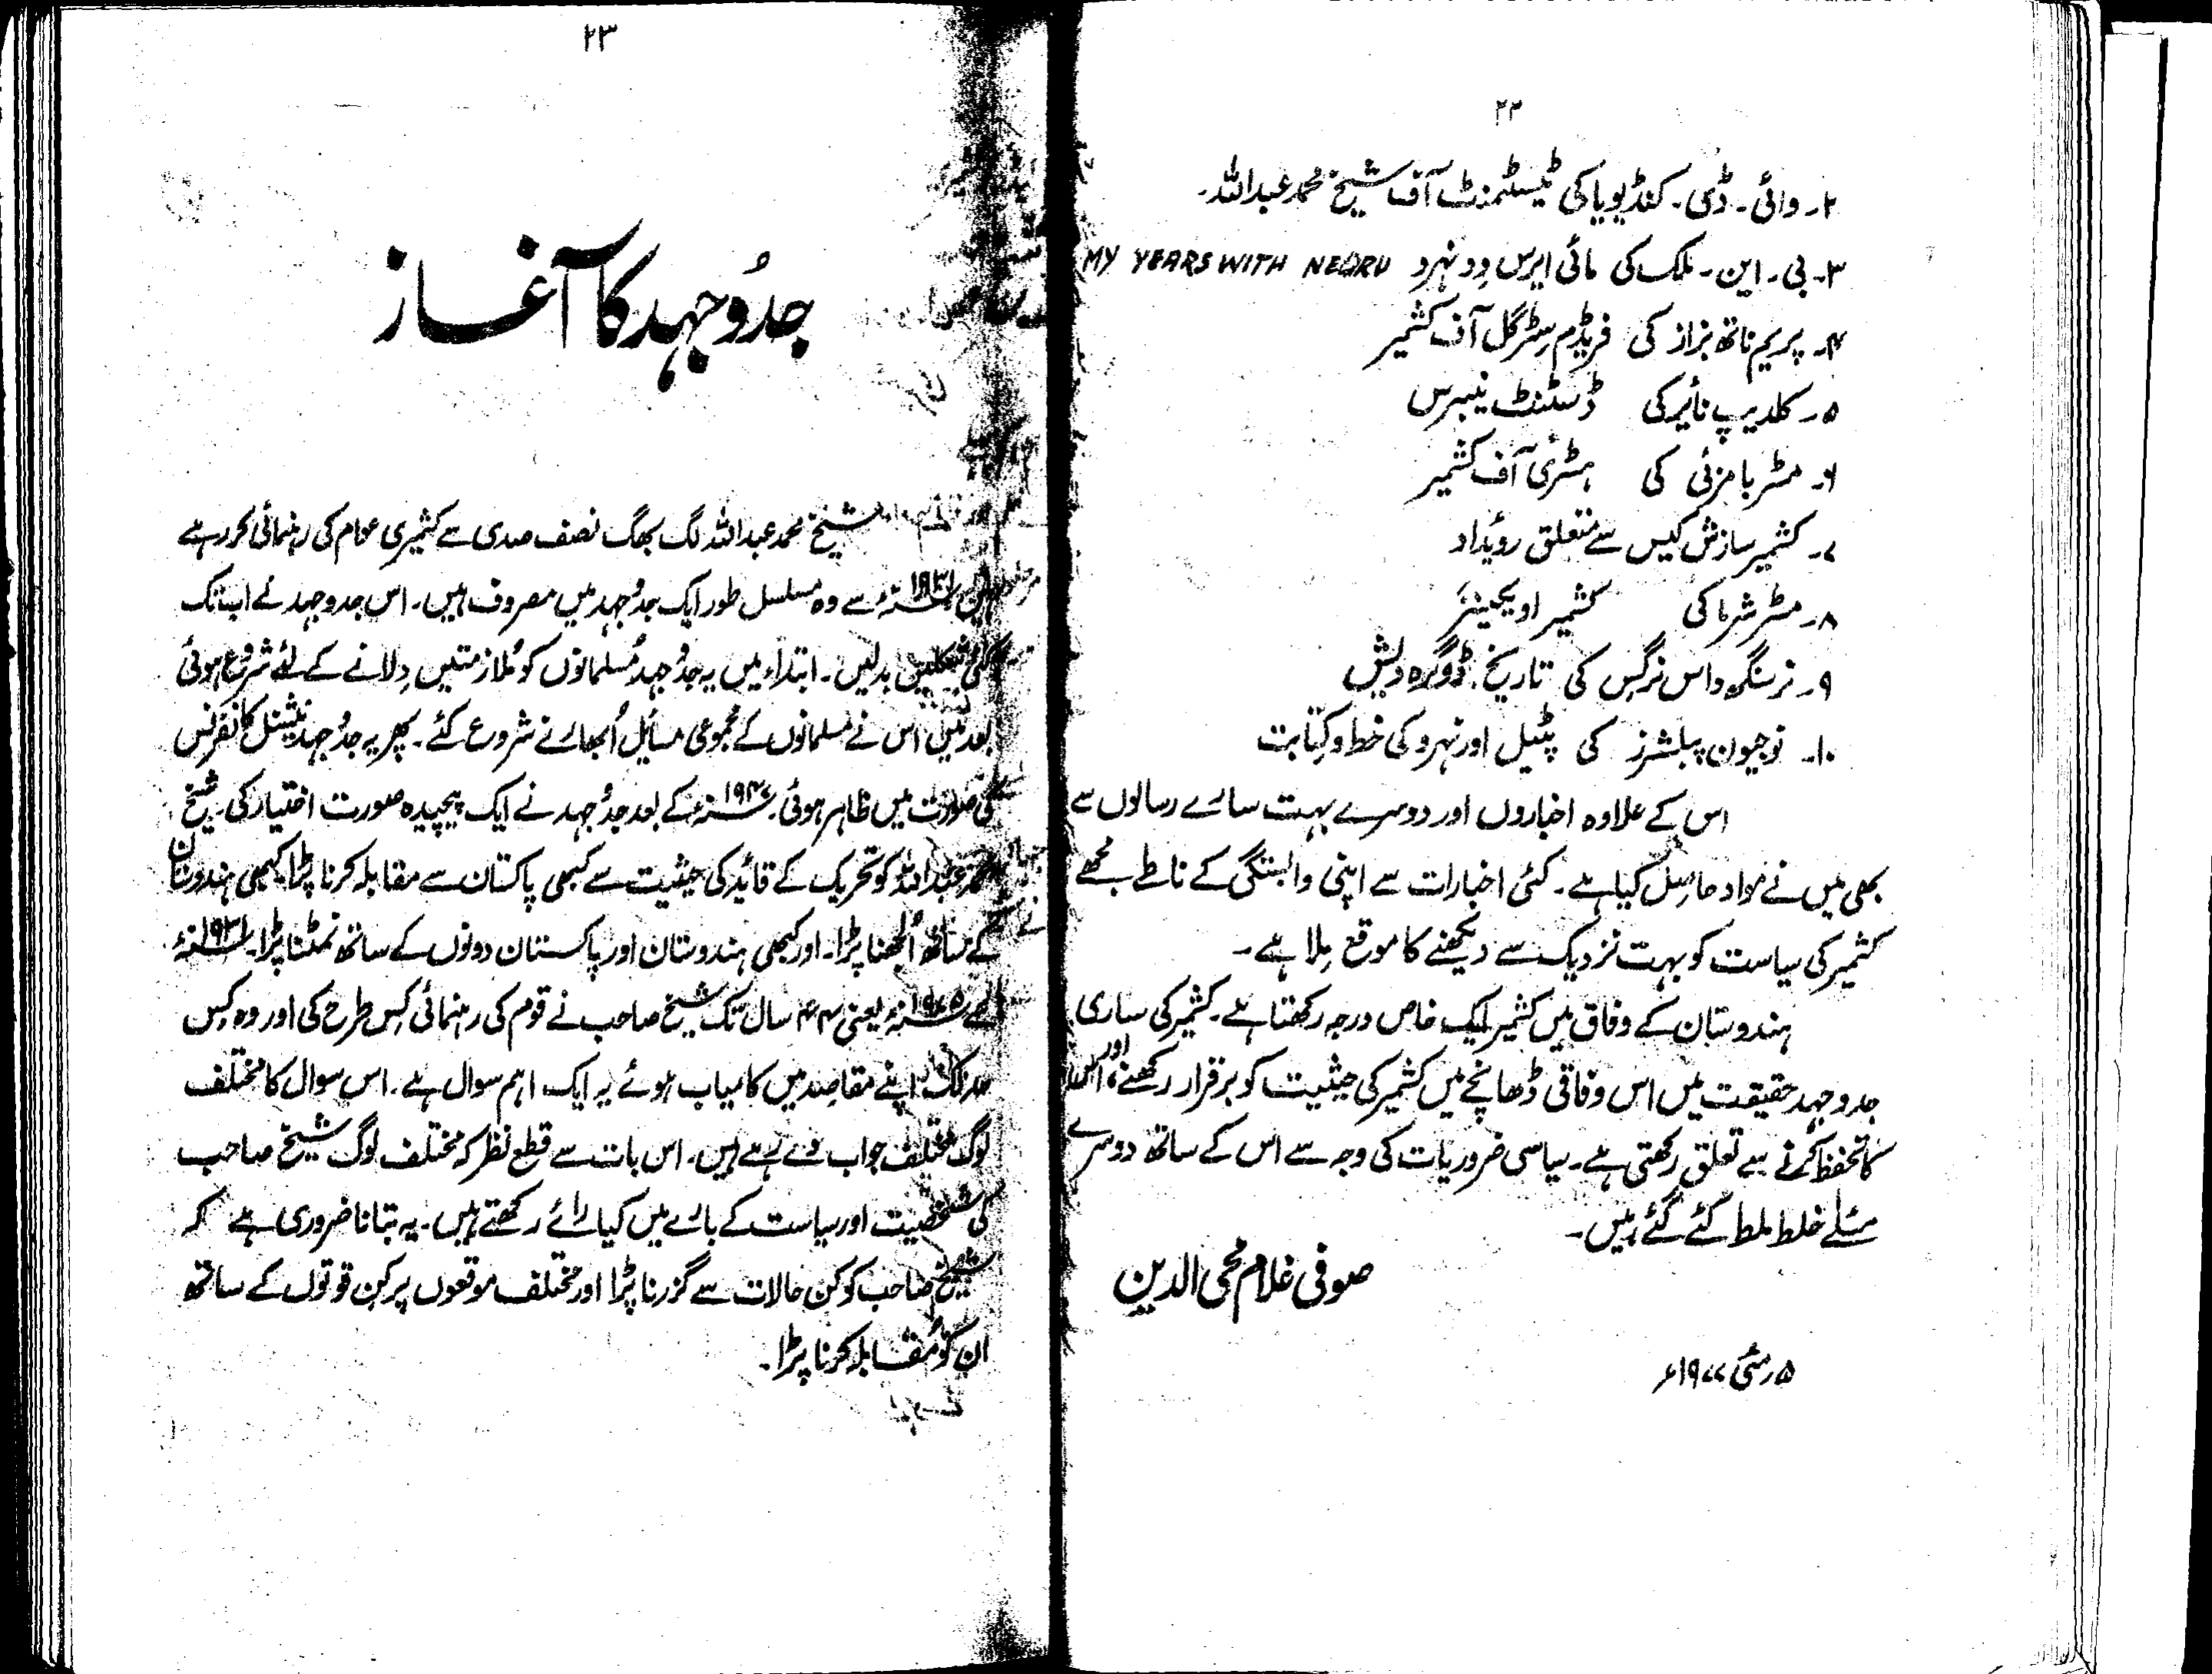 ۲۲
۲۔ وائی۔ ڈی۔ کنڈیویا کی ٹیسٹمنٹ آف شیخ محمد عبداللہ۔
۳۔ بی۔ این۔ ملک کی مائی ایرس وِد نہرو MY YEARS WITH NEHRU
۴۔ پریم ناتھ بزاز کی فریڈم سٹرگل آف کشمیر
۵۔ کلدیپ نائیر کی ڈسٹنٹ نیبرس
۶۔ مسٹر بامزئی کی ہسٹری آف کشمیر
۷۔ کشمیر سازش کیس سے متعلق روئیداد
۸۔ مسٹر شرما کی کشمیر اویکینز
۹۔ نرسنگھ داس نرگس کی تاریخ ڈوگرہ دیش
۱۰۔ نوجیون پبلشرز کی پٹیل اور نہرو کی خط و کِتابت
اس کے علاوہ اخباروں اور دوسرے بہت سارے رسالوں سے
بھی میں نے مواد حاصِل کیا ہے۔ کئی اخبارات سے اپنی وابستگی کے ناطے مجھے
کشمیر کی سیاست کو بہت نزدیک سے دیکھنے کا موقع مِلا ہے۔
ہندوستان کے وفاق میں کشمیر ایک خاص درجہ رکھتا ہے۔ کشمیر کی ساری
جدوجہد حقیقت میں اس وفاقی ڈھانچے میں کشمیر کی حیثیت کو برقرار رکھنے، اور اس
کا تحفظ کرنے سے تعلق رکھتی ہے۔ سیاسی ضروریات کی وجہ سے اس کے ساتھ دوسرے
مسئلے خلط ملط کئے گئے ہیں۔
صوفی غلام محی الدین
۵؍ مئی ۱۹۷۷ء
۲۳
جدُوجہد کا آغاز
شیخ محمد عبداللہ لگ بھگ نصف صدی سے کشمیری عوام کی رہنمائی کر رہے
ہیں ۱۹۳۱ء سے وہ مسلسل طور ایک جدوجہد میں مصروف ہیں۔ اس جدوجہد نے اب تک
کئی شکلیں بدلیں۔ ابتداء میں یہ جدوجہد مُسلمانوں کو مُلازمتیں دِلانے کے لئے شروع ہوئی
بعد میں اس نے مسلمانوں کے مجموعی مسائل اُبھارنے شروع کئے۔ پھر یہ جدوجہد نیشنل کانفرنس
کی صورت میں ظاہر ہوئی۔ ۱۹۴۷ء کے بعد جدوجہد نے ایک پیچیدہ صورت اختیار کی۔ شیخ
محمد عبداللہ کو تحریک کے قائد کی حیثیت سے کبھی پاکستان سے مقابلہ کرنا پڑا کبھی ہندوستان
کے ساتھ اُلجھنا پڑا۔ اور کبھی ہندوستان اور پاکستان دونوں کے ساتھ نمٹنا پڑا۔ ۱۹۳۱ء
سے ۱۹۷۵ء یعنی ۴۴ سال تک شیخ صاحب نے قوم کی رہنمائی کِس طرح کی اور وہ کِس
حد تک اپنے مقاصد میں کامیاب ہوئے یہ ایک اہم سوال ہے۔ اس سوال کا مختلف
لوگ مختلف جواب دے رہے ہیں۔ اس بات سے قطع نظر کہ مختلف لوگ شیخ صاحب
کی شخصیت اور سیاست کے بارے میں کیا رائے رکھتے ہیں۔ یہ بتانا ضروری ہے کہ
شیخ صاحب کو کن حالات سے گزرنا پڑا اور مختلف موقعوں پر کِن قوتوں کے ساتھ
ان کو مُقابلہ کرنا پڑا۔